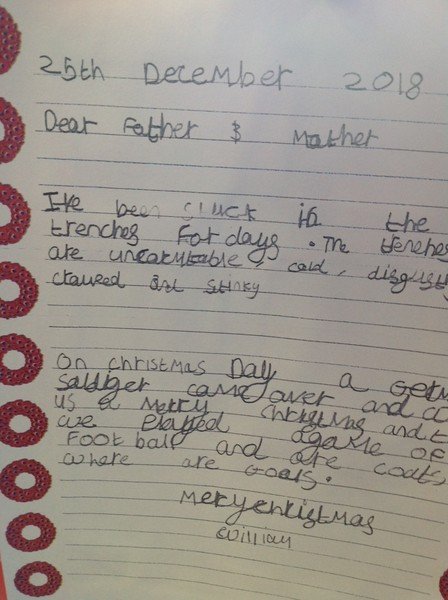 25th December 2018
Dear Father & Mother
I've been stuck in the
trenches For days . The trenches
are uncomtable, cold, disgust
crawed and stinky
On christmas Day a Germ
Saldger came over and
us a Merry christmas and
we played agame of
Foot ball and are coats,
where are Goals.
Merychristmas
William